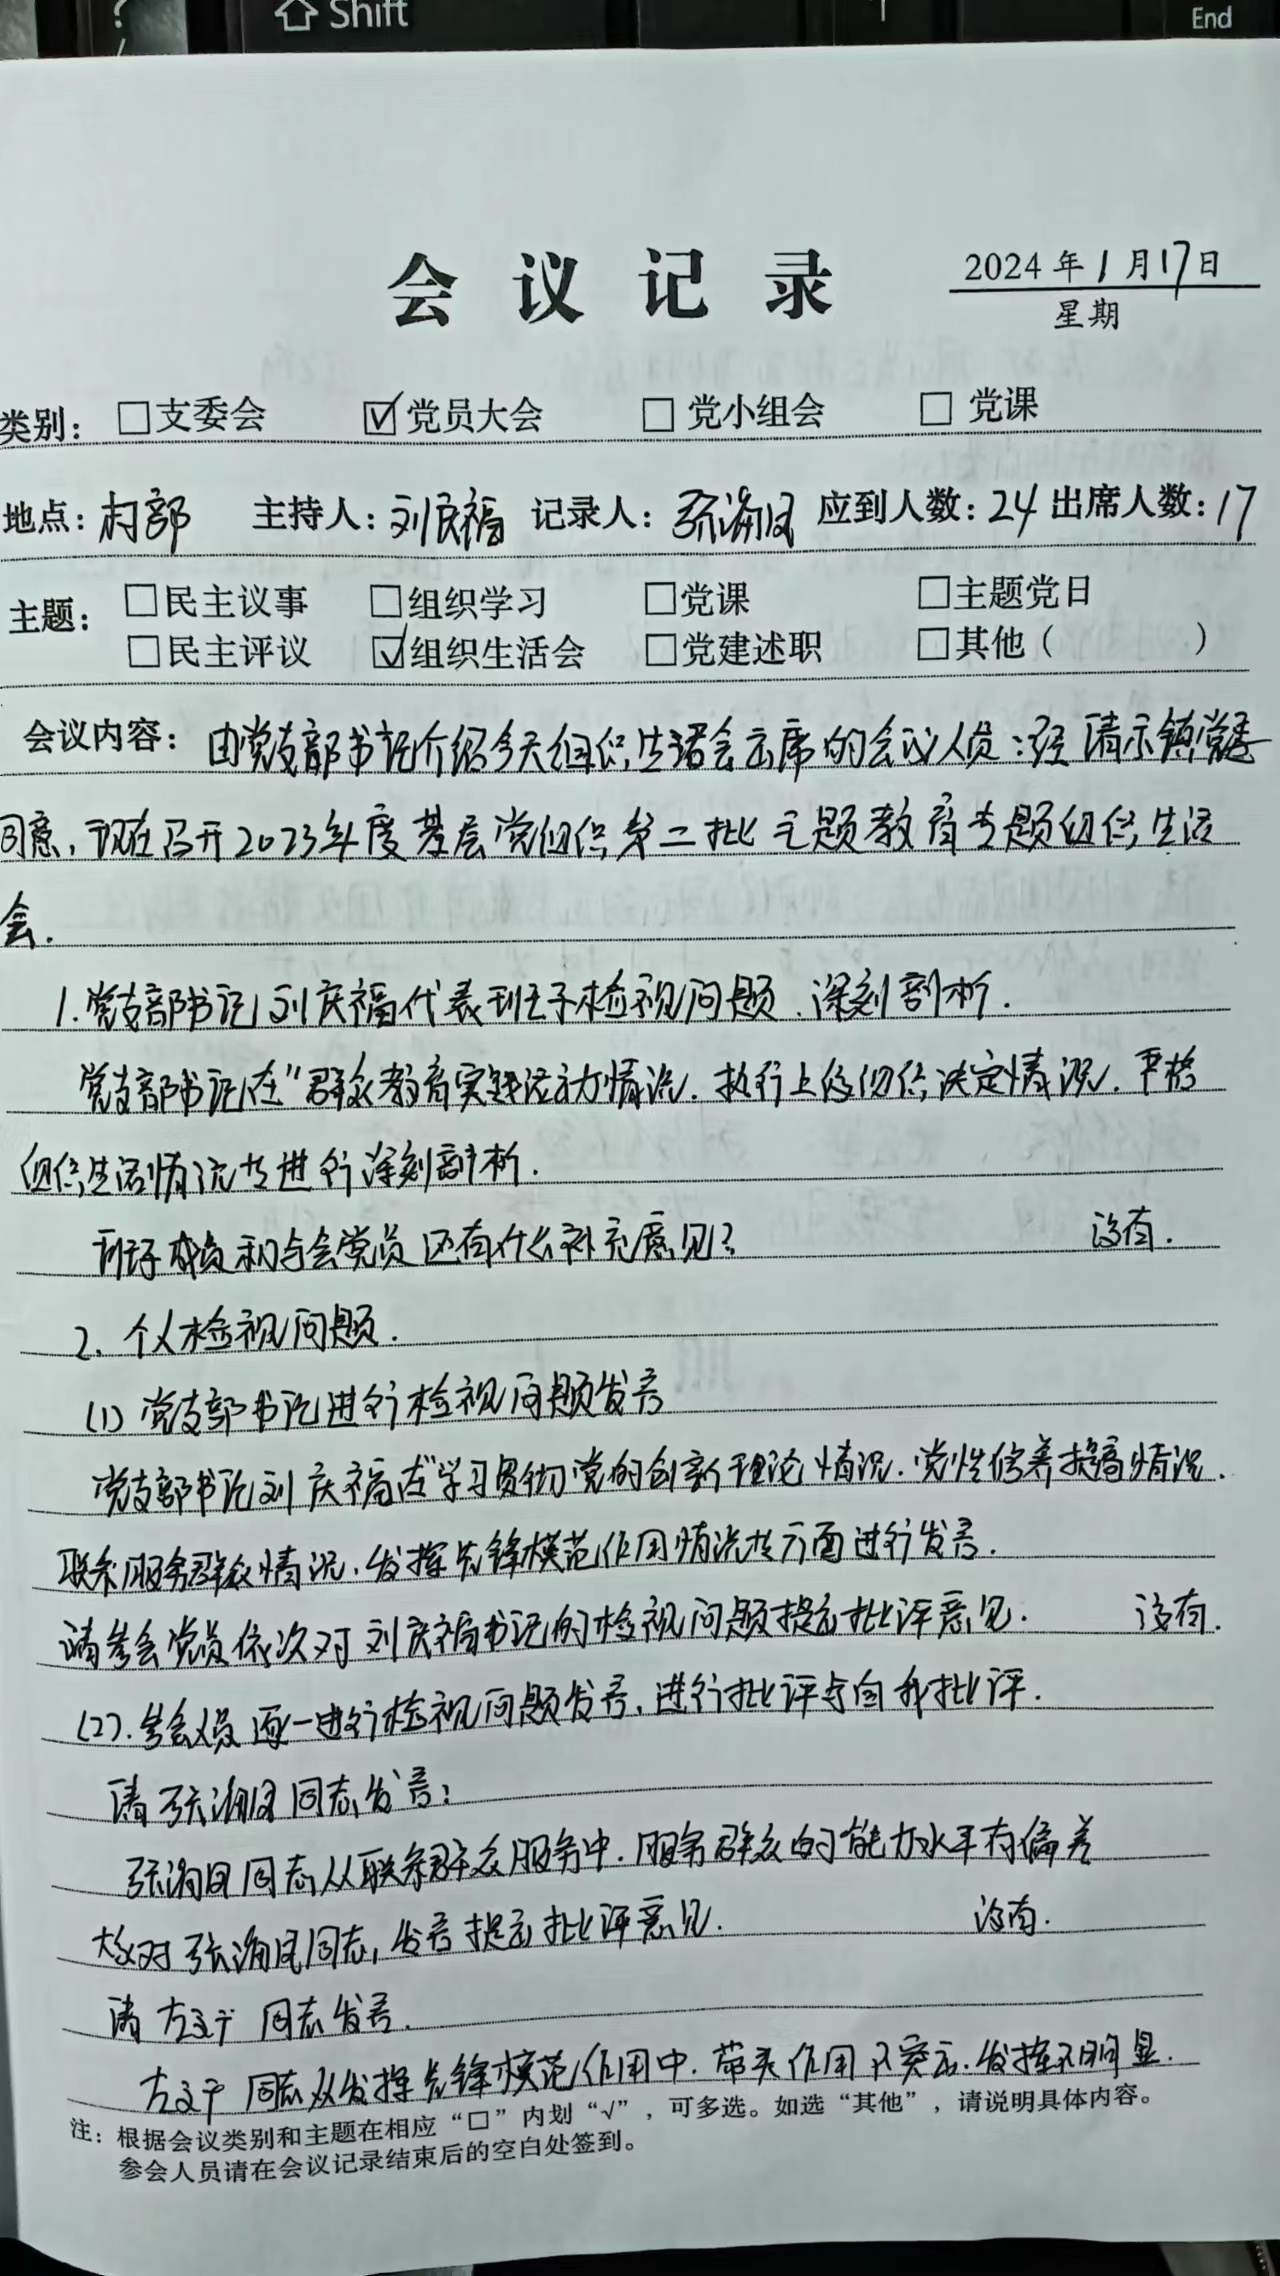 ? Shift End
会议记录
2024年1月17日
星期
类别: □支委会 ☑党员大会 □党小组会 □党课
地点: 村部 主持人: 刘庆福 记录人: 张海凤 应到人数: 24 出席人数: 17
主题: □民主议事 □组织学习 □党课 □主题党日
□民主评议 ☑组织生活会 □党建述职 □其他( )
会议内容: 由党支部书记介绍今天组织生活会出席的会议人员: 经请示镇党委
同意, 现在召开2023年度基层党组织第二批主题教育专题组织生活
会.
1.党支部书记刘庆福代表班子检视问题、深刻剖析.
党支部书记在"群众教育实践活动情况、执行上级组织决定情况、严格
组织生活情况等进行深刻剖析.
班子成员和与会党员还有什么补充意见? 没有.
2. 个人检视问题.
(1) 党支部书记进行检视问题发言
党支部书记刘庆福在"学习贯彻党的创新理论情况、党性修养提高情况、
联系服务群众情况、发挥先锋模范作用情况等方面进行发言.
请参会党员依次对刘庆福书记的检视问题提出批评意见. 没有.
(2).参会人员逐一进行检视问题发言, 进行批评与自我批评.
请张海凤同志发言:
张海凤同志从联系群众服务中, 服务群众的能力水平有偏差
大家对张海凤同志, 发言提出批评意见. 没有.
请 同志发言.
同志从发挥先锋模范作用中, 带头作用不突出, 发挥不明显.
注: 根据会议类别和主题在相应“□”内划“√”, 可多选。如选“其他”, 请说明具体内容。
参会人员请在会议记录结束后的空白处签到。